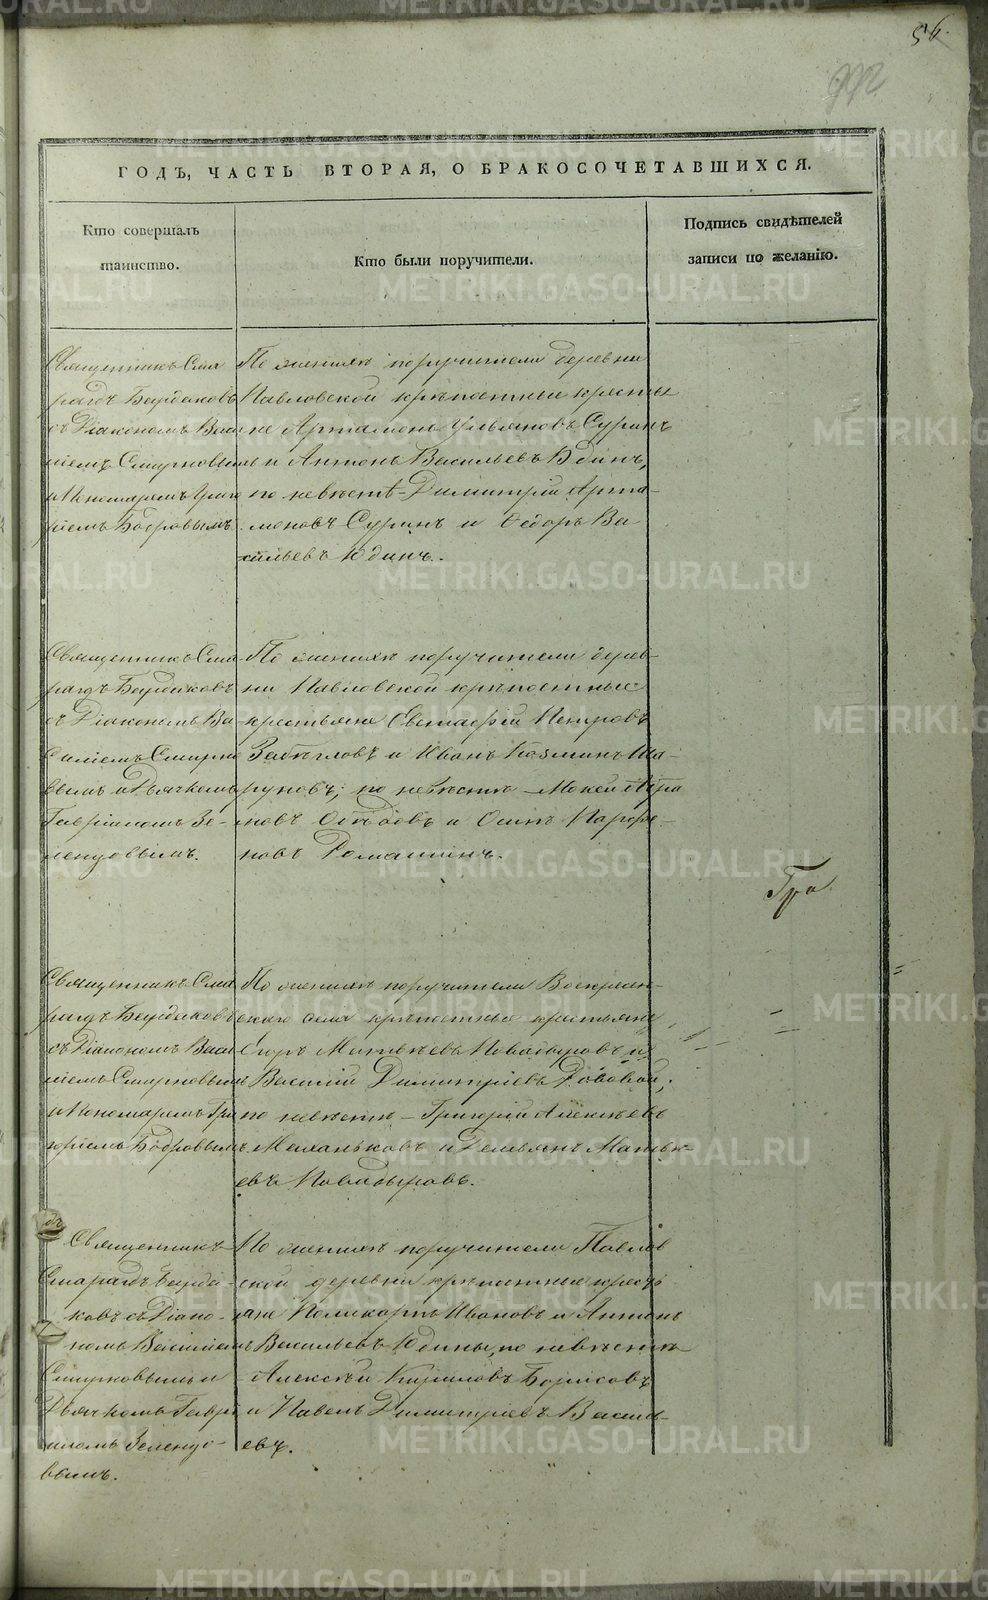 56.
992
ГОДЪ, ЧАСТЬ ВТОРАЯ, О БРАКОСОЧЕТАВШИХСЯ.
Кто совершалъ
таинство.
Кто были поручители.
Подпись свидѣтелей
записи по желанію.
Священникъ Сма
рагдъ Бурдаковъ
съ Діакономъ Васи
ліемъ Смирновымъ
и Пономаремъ Григо
ріемъ Бобровымъ.
По женихѣ поручители деревни
Павловской крѣпостные крестья
не Артамонъ Ульяновъ Суринъ
и Антонъ Васильевъ Юдинъ,
по невѣстѣ – Димитрій Арта-
моновъ Суринъ и Ѳедоръ Ва
сильевъ Юдинъ.
Священникъ Сма-
рагдъ Бурдаковъ
съ Діакономъ Ва
силіемъ Смирно
вымъ и Дьячкомъ
Гавріиломъ Зе-
ленцовымъ.
По женихѣ поручители дерев-
ни Павловской крѣпостные
крестьяне Евстафій Петровъ
и Иванъ Козминъ Ша-
руновъ; по невѣстѣ – Мокей
и Осипъ Парфе-
новъ Ромашинъ.
Гра
Священникъ Сма
рагдъ Бурдаковъ
съ Діакономъ Васи
ліемъ Смирновымъ
и Пономаремъ Гри
горіемъ Бобровымъ.
По женихѣ поручители Воскресен-
скаго села крѣпостные крестьяне
Егоръ Матвѣевъ Повадыровъ и
Василій Димитріевъ
по невѣстѣ – Григорій Алексѣевъ
Механьковъ и Демьянъ Матвѣ-
евъ Повадыровъ.
Священникъ
Смарагдъ Бурда-
ковъ съ Діако-
номъ Василіемъ
Смирновымъ и
Дьячкомъ Гаврі
иломъ Зеленцо-
вымъ.
По женихѣ поручители Павлов
ской деревни крѣпостные кресть
яне Поликарпъ Ивановъ и Антонъ
Васильевъ Юдины, по невѣстѣ
– Алексѣй Кириловъ Борисовъ
и Павелъ Димитріевъ Василь-
евъ.
METRIKI.GASO-URAL.RU